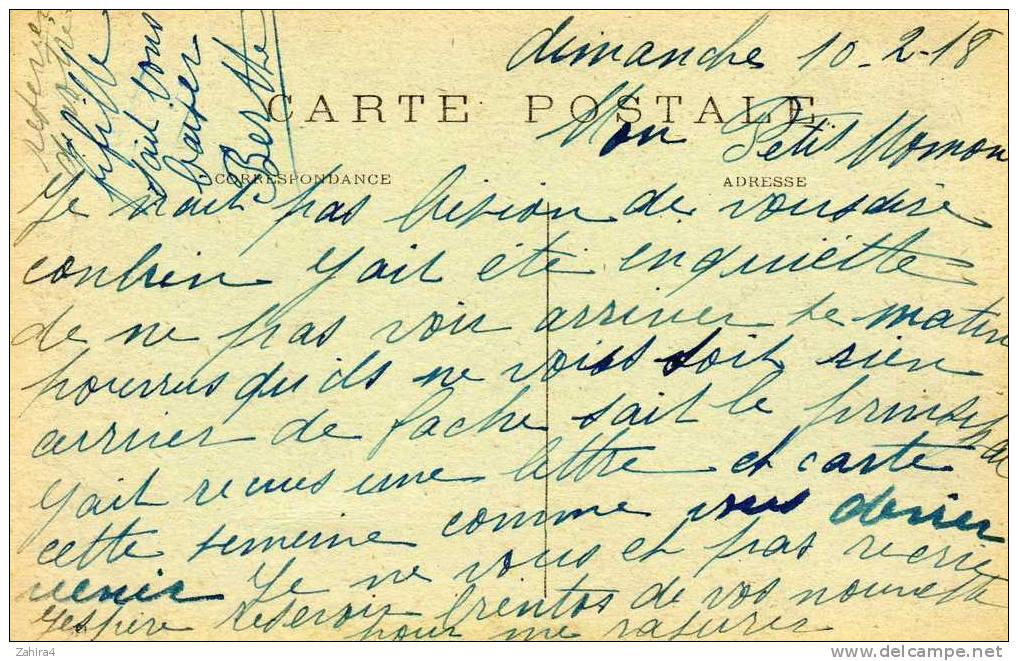 dimanche 10-2-18
CARTE POSTALE
Mon Petit Momon
CORRESPONDANCE
ADRESSE
Je nait pas besion de vous dire
conbien yait été enquiette
de ne pas voir arriver se matin
pourvus qu ils ne vous soit rien
arriver de fache sait le prinsipal
yait recus une lettre et carte
cette semeine comme vous devier
venir Je ne vous et pas recrie
yespère reservoir bientos de vos nouvelle
pour me rasurer
fifille
sait vous
baiser
Berthe
Zahira4
delcampe.net